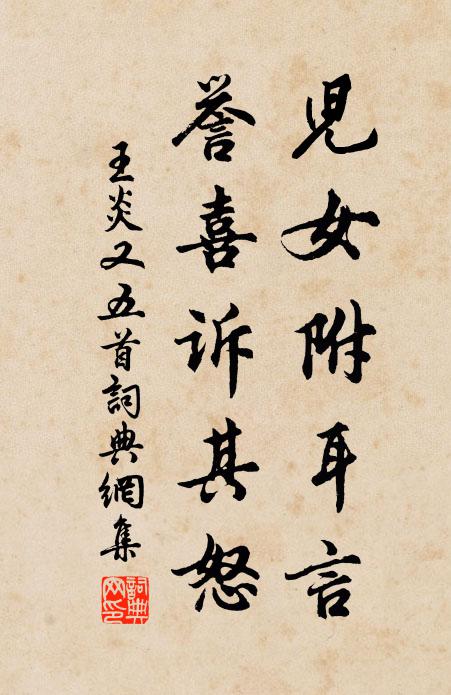 兒女附耳言
譽喜訴其怒
王炎又五首詞典網集
詞典
女